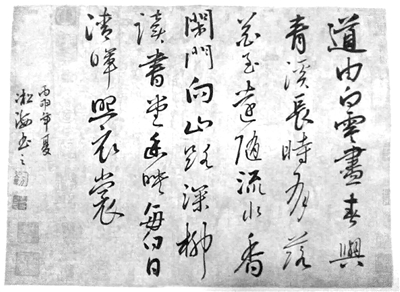 道由白雲盡春與
青溪長時有落
花至遠隨流水香
閑門向山路深柳
讀書堂幽映每白日
清暉照衣裳
年夏
書之